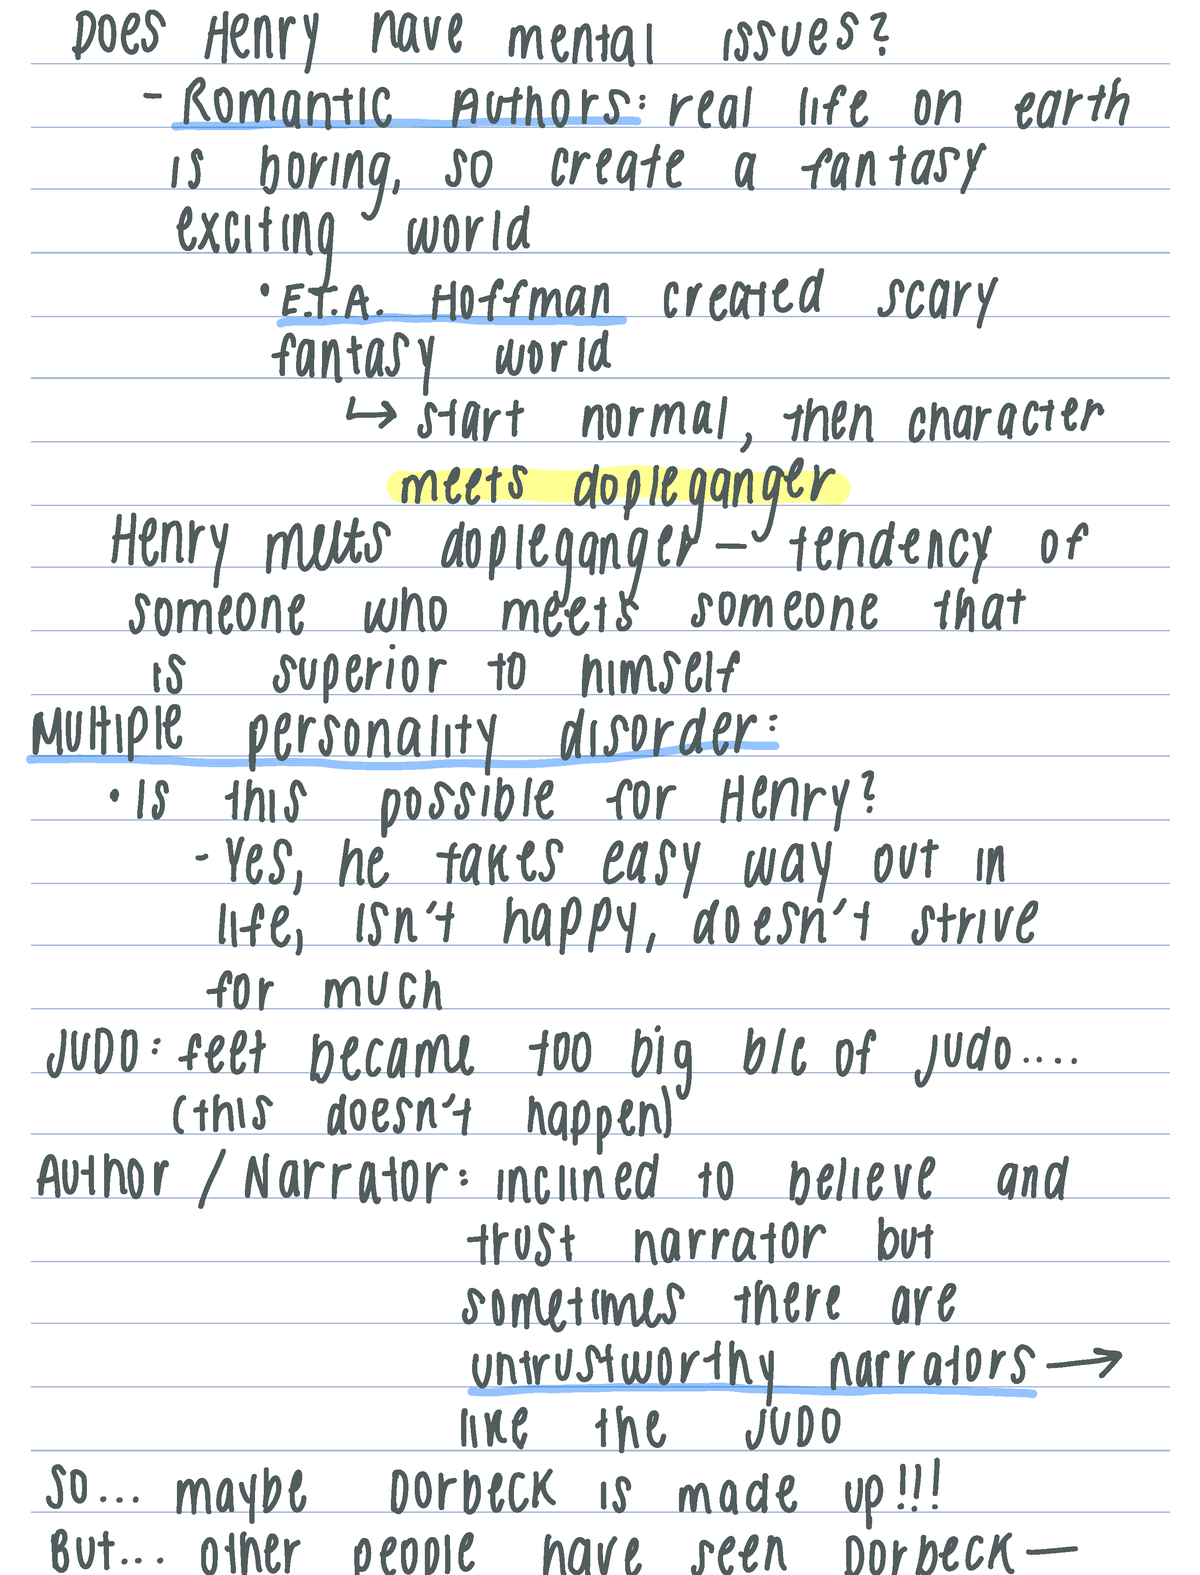 Does Henry have mental issues?
- Romantic Authors: real life on earth
is boring, so create a fantasy
exciting world
• E.T.A. Hoffman created scary
fantasy world
↳ start normal, then character
meets dopleganger
Henry meets dopleganger — tendency of
someone who meets someone that
is superior to himself
Multiple personality disorder:
• Is this possible for Henry?
- Yes, he takes easy way out in
life, isn't happy, doesn't strive
for much
JUDO: feet became too big b/c of judo....
(this doesn't happen)
Author / Narrator: inclined to believe and
trust narrator but
sometimes there are
untrustworthy narrators →
like the JUDO
So... maybe Dorbeck is made up!!!
But... other people have seen Dorbeck —